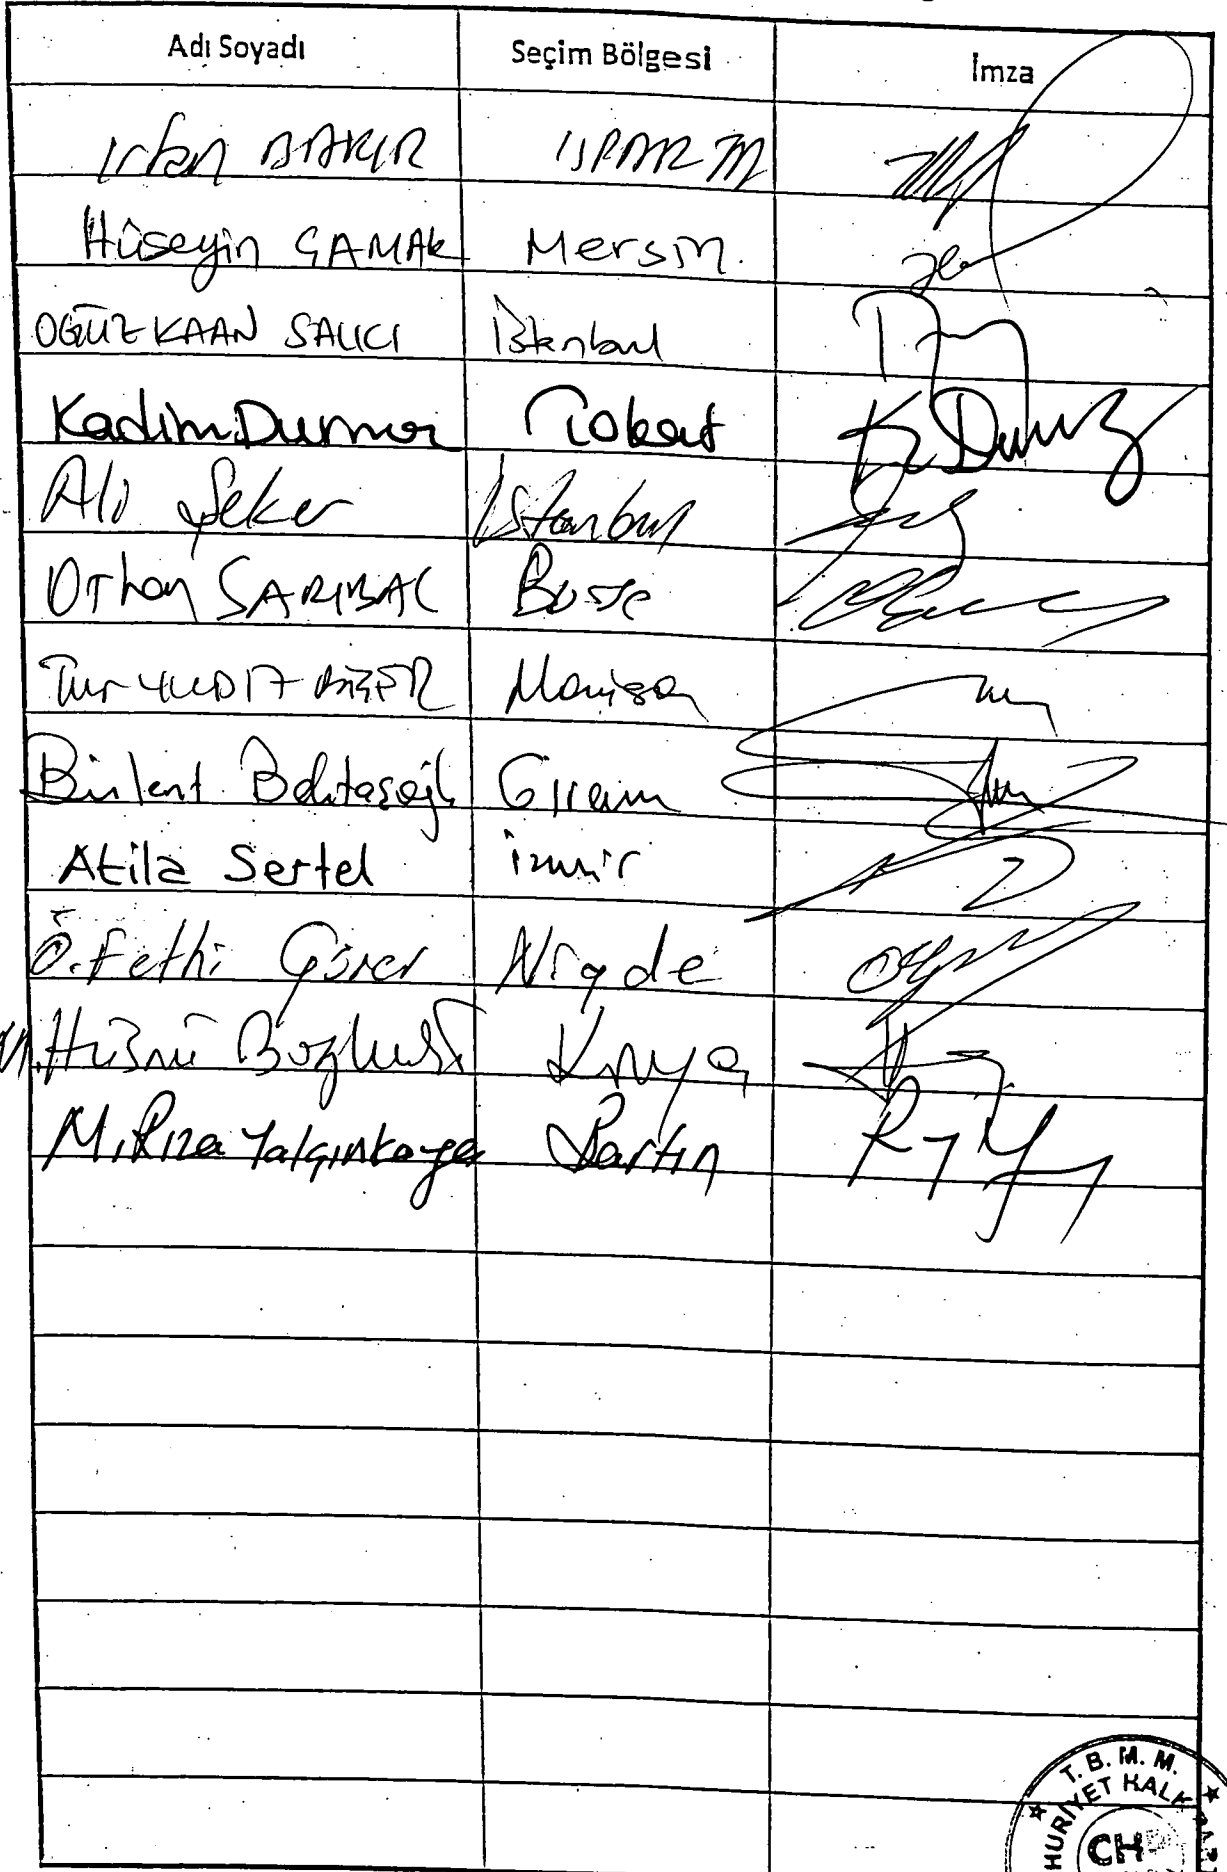 Adı Soyadı Seçim Bölgesi İmza
İrfan BAKIR ISPARTA
Hüseyin ÇAMAK Mersin.
OĞUZ KAAN SALICI İstanbul
Kadim Durmaz Tokat K. Durmaz
Ali Şeker İstanbul
Orhan SARIBAL Bursa
Tur YILDIZ BİÇER Manisa
Bülent Bektaşoğlu Giresun
Atila Sertel İzmir
Ö. Fethi Gürer Niğde
M. Hüsnü Bozkurt Konya
M. Rıza Yalçınkaya Bartın
T. B. M. M.
HURİYET HALK PAR
CH